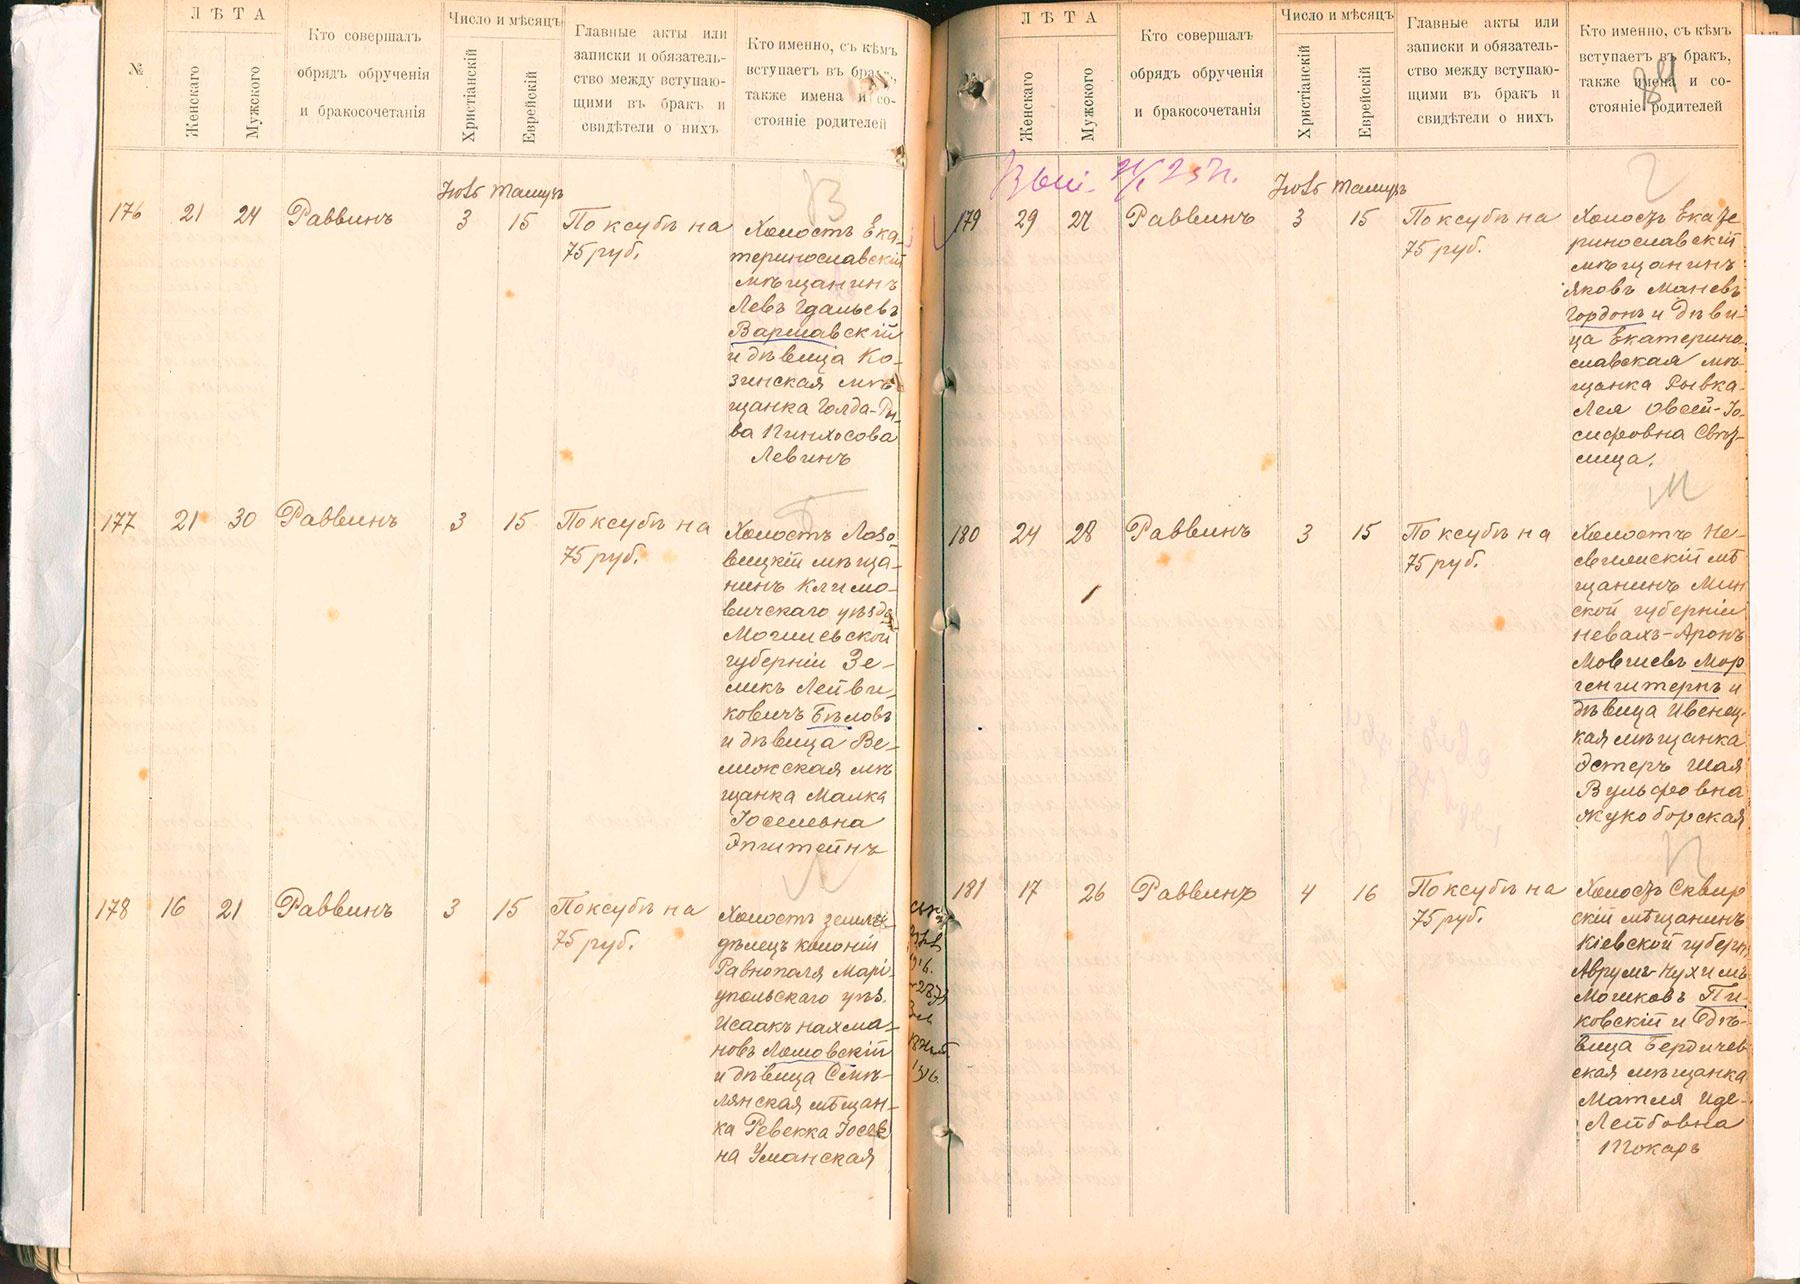 №
ЛѢТА
Женскаго
Мужского
Кто совершалъ
обрядъ обрученія
и бракосочетанія
Число и мѣсяцъ
Христіанскій
Еврейскій
Главные акты или
записки и обязатель-
ство между вступаю-
щими въ бракъ и
свидѣтели о нихъ
Кто именно, съ кѣмъ
вступаетъ въ бракъ,
также имена и со-
стояніе родителей
В
Іюль Тамузъ
176 21 24 Раввинъ 3 15 По ксубѣ на
75 руб.
Холостъ Ека-
теринославскій
мѣщанинъ
Левъ Гдальевъ
Варшавскій
и дѣвица Ко-
зинская мѣ-
щанка Голда-Ры-
ва Пинхосова
Левинъ
Б
177 21 30 Раввинъ 3 15 По ксубѣ на
75 руб.
Холостъ Лазо-
вицкій мѣща-
нинъ Климо-
вичскаго уѣзда
Могилевской
губерніи Зе-
ликъ Лейви-
ковичъ Бѣловъ
и дѣвица Ве-
лижская мѣ-
щанка Малка
Іоселевна
Эпштейнъ
Л
178 16 21 Раввинъ 3 15 По ксубѣ на
75 руб.
Холостъ земле-
дѣлецъ колоніи
Равнополя Марі-
упольскаго уѣз.
Исаакъ Нахма-
новъ Ломовскій
и дѣвица Смѣ-
лянская мѣщан-
ка Ревекка Іосев-
на Уманская
ЛѢТА
Женскаго
Мужского
Кто совершалъ
обрядъ обрученія
и бракосочетанія
Число и мѣсяцъ
Христіанскій
Еврейскій
Главные акты или
записки и обязатель-
ство между вступаю-
щими въ бракъ и
свидѣтели о нихъ
Кто именно, съ кѣмъ
вступаетъ въ бракъ,
также имена и со-
стояніе родителей
Г
Іюль Тамузъ
179 29 27 Раввинъ 3 15 По ксубѣ на
75 руб.
Холостъ Екате
ринославскій
мѣщанинъ
Яковъ Маневъ
Гордонъ и дѣви-
ца Екатерино-
славская мѣ-
щанка Рывка-
Лея Овсей-Іо-
сифовна Свѣт-
лица.
М
180 24 28 Раввинъ 3 15 По ксубѣ на
75 руб.
Холостъ Не-
свижскій мѣ
щанинъ Мин
ской губерніи
Невахъ-Аронъ
Мовшевъ Мор
генштернъ и
дѣвица Ивенец-
кая мѣщанка
Эстеръ Шая
Вульфовна
Жукоборская
П
181 17 26 Раввинъ 4 16 По ксубѣ на
75 руб.
Холостъ Сквир
скій мѣщанинъ
Кіевской губерн.
Аврумъ-Нухимъ
Мошковъ Пи-
ковскій и дѣ-
вица Бердичев
ская мѣщанка
Матля Иде-
Лейбовна
Токаръ